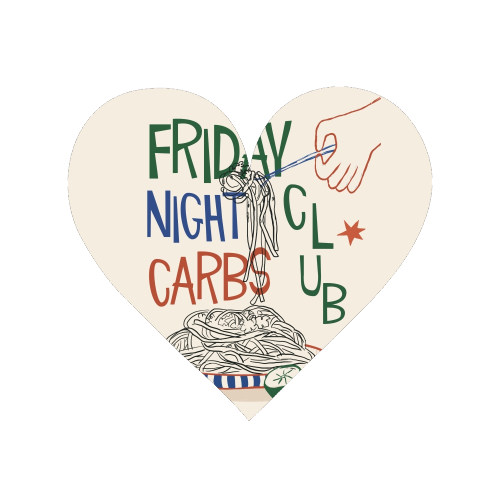 FRIDAY
NIGHT
CARBS
CL
UB